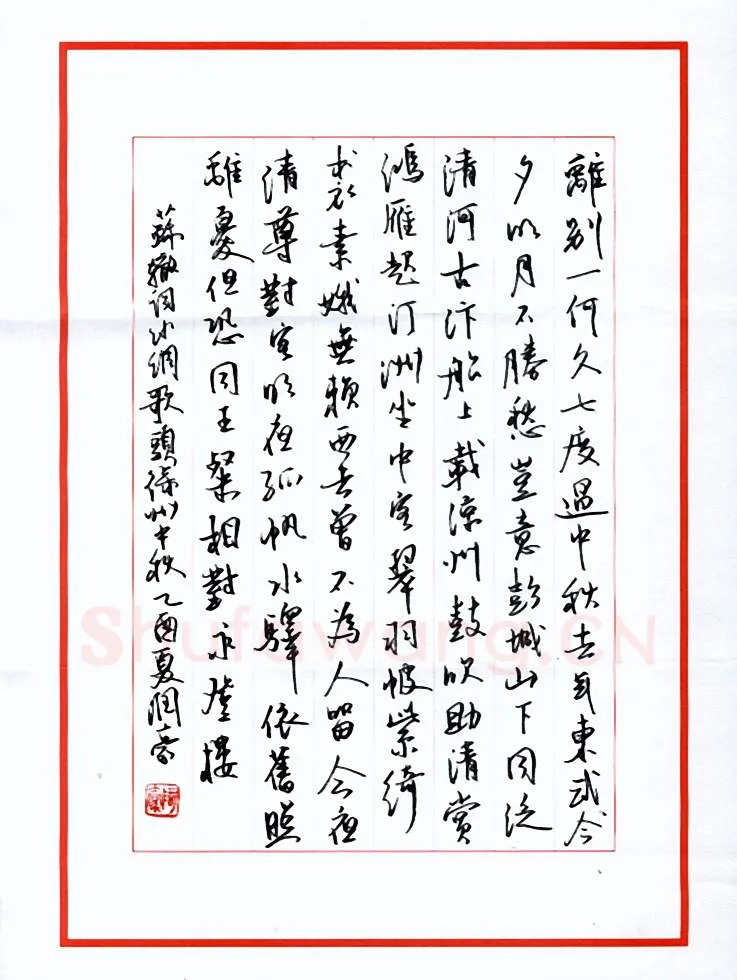 離別一何久七度過中秋去年東武今
夕明月不勝愁豈意彭城山下同泛
清河古汴船上載涼州鼓吹助清賞
鴻雁起汀洲坐中客翠羽帔紫綺
裘素娥無賴西去曾不為人留今夜
清尊對客明夜孤帆水驛依舊照
離憂但恐同王粲相對永登樓
蘇轍詞水調歌頭徐州中秋乙酉夏潤
Shufawang.CN